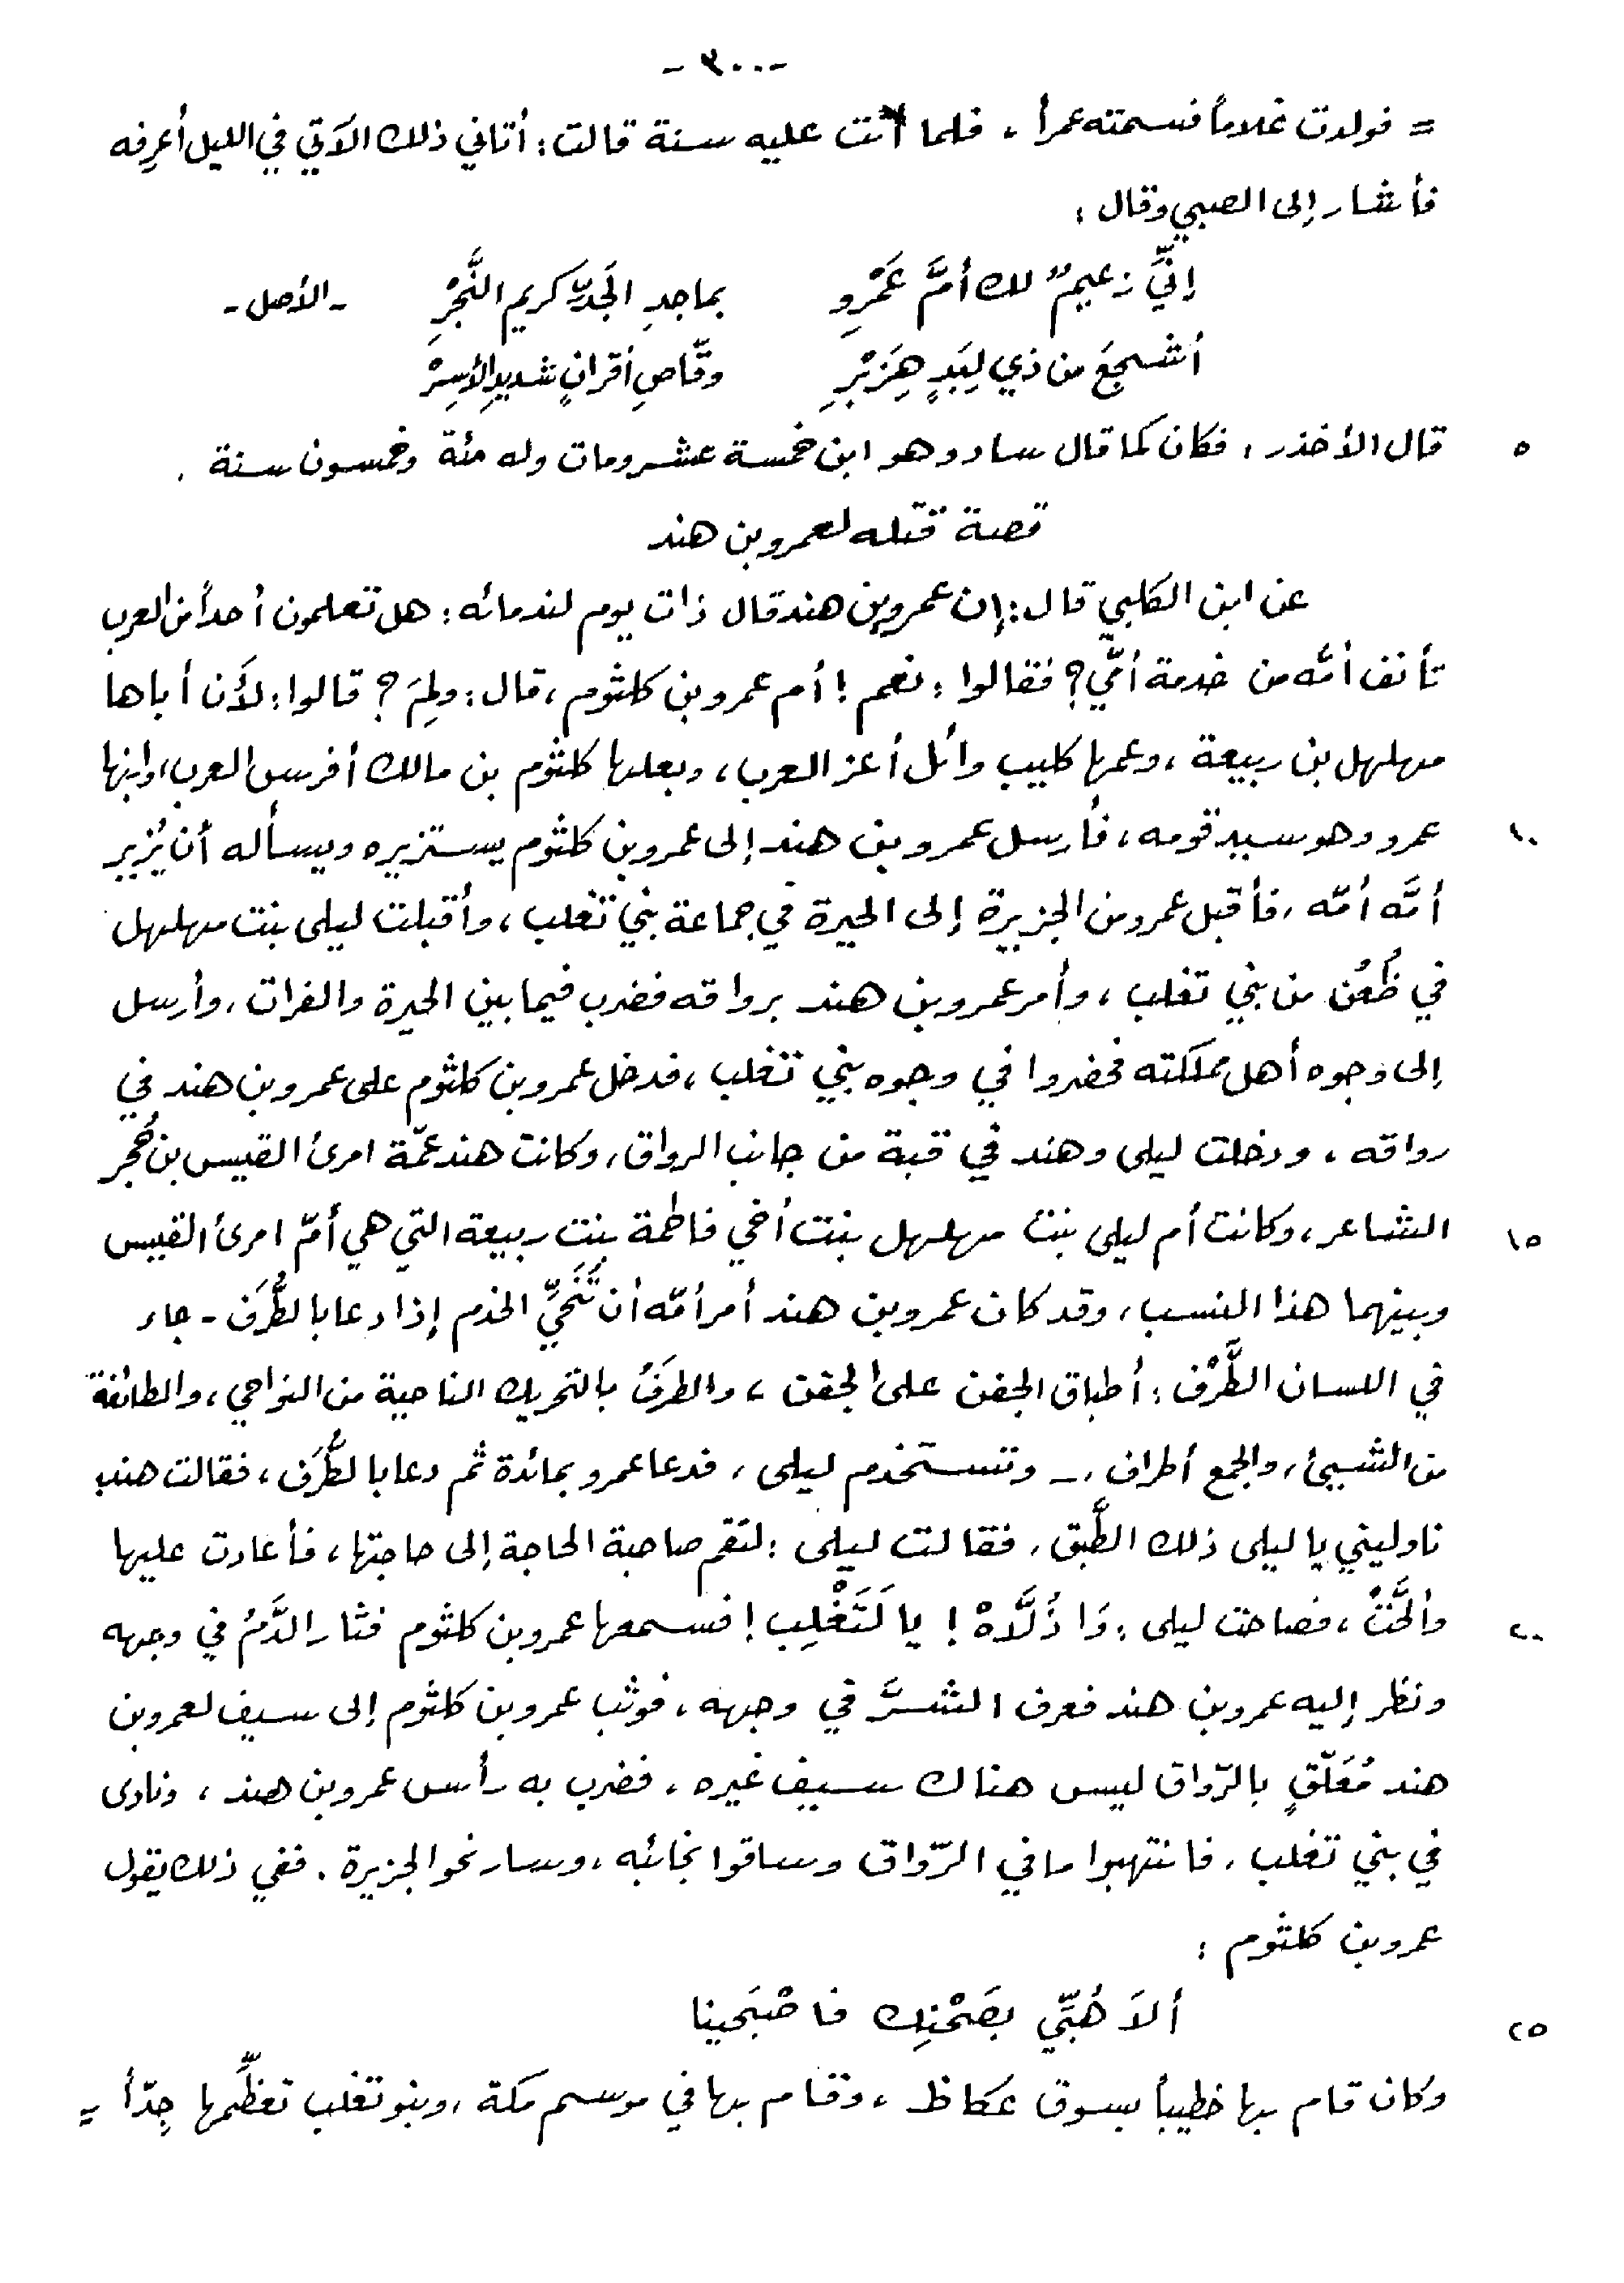 - ٣٠٠ -
= فولدت غلاماً فسمته عمرأ ، فلما أتت عليه سنة قالت : أتاني ذلك الآتي في الليل أعرفه
فأشار إلى الصبي وقال :
إنِّي زعيمٌ لك أمَّ عَمْرِو بماجدِ الجَدِّ كريم النَّجْرِ - الأصل -
أشجعَ من ذي لِبَدٍ هِزَبْرِ وقّاصِ أقرانٍ شديدِ الأسِرْ
٥ قال الأخذر ، فكان كما قال ساد وهو ابن خمسة عشر ومات وله مئة وخمسون سنة .
قصة قتله لعمرو بن هند
عن ابن الكلبي قال : إن عمرو بن هند قال ذات يوم لندمائه : هل تعلمون أحداً من العرب
تأنف أمّه من خدمة أمّي ؟ فقالوا : نعم ! أم عمرو بن كلثوم ، قال : ولِمَ ؟ قالوا : لأن أباها
مهلهل بن ربيعة ، وعمها كليب وائل أعز العرب ، وبعلها كلثوم بن مالك أفرس العرب ، وابنها
١٠ عمرو وهو سيد قومه ، فأرسل عمرو بن هند إلى عمرو بن كلثوم يستزيره ويسأله أن يُزير
أمَّه أمّه ، فأقبل عمرو من الجزيرة إلى الحيرة في جماعة بني تغلب ، وأقبلت ليلى بنت مهلهل
في ظُعُن من بني تغلب ، وأمر عمرو بن هند برواقه فضرب فيما بين الحيرة والفرات ، وأرسل
إلى وجوه أهل مملكته فحضروا في وجوه بني تغلب ، فدخل عمرو بن كلثوم على عمرو بن هند في
رواقه ، ودخلت ليلى وهند في قبة من جانب الرواق ، وكانت هند عمّة امرئ القيس بن حُجر
١٥ الشاعر ، وكانت أم ليلى بنت مهلهل بنت أخي فاطمة بنت ربيعة التي هي أمّ امرئ القيس
وبينهما هذا النسب ، وقد كان عمرو بن هند أمر أمّه أن تُنَحِّيَ الخدم إذا دعا بالطُّرَف - جاء
في اللسان الطَّرْف : أطباق الجفن على الجفن ، والطرَفُ بالتحريك الناحية من النواحي ، والطائفة
من الشيئ ، والجمع أطراف ، - وتستخدم ليلى ، فدعا عمرو بمائدة ثم دعا بالطُّرَف ، فقالت هند
ناوليني يا ليلى ذلك الطَّبق ، فقالت ليلى : لتقم صاحبة الحاجة إلى حاجتها ، فأعادت عليها
٢٠ وألَحَّتْ ، فصاحت ليلى : وَا ذُلَّاهْ ! يا لَتَغْلِب ! فسمعها عمرو بن كلثوم فثار الدَّمُ في وجهه
ونظر إليه عمرو بن هند فعرف الشرَّ في وجهه ، فوثب عمرو بن كلثوم إلى سيف لعمرو بن
هند مُعَلّقٍ بالرّواق ليس هناك سيف غيره ، فضرب به رأس عمرو بن هند ، ونادى
في بني تغلب ، فانتهبوا ما في الرّواق وساقوا نجائبه ، وسار نحو الجزيرة . ففي ذلك يقول
عمرو بن كلثوم :
٢٥ ألاَ هُبِّي بصَحْنِك فاصْبَحينا
وكان قام بها خطيباً بسوق عكاظ ، وقام بها في موسم مكة ، وبنو تغلب تعظِّمها جِدّاً =